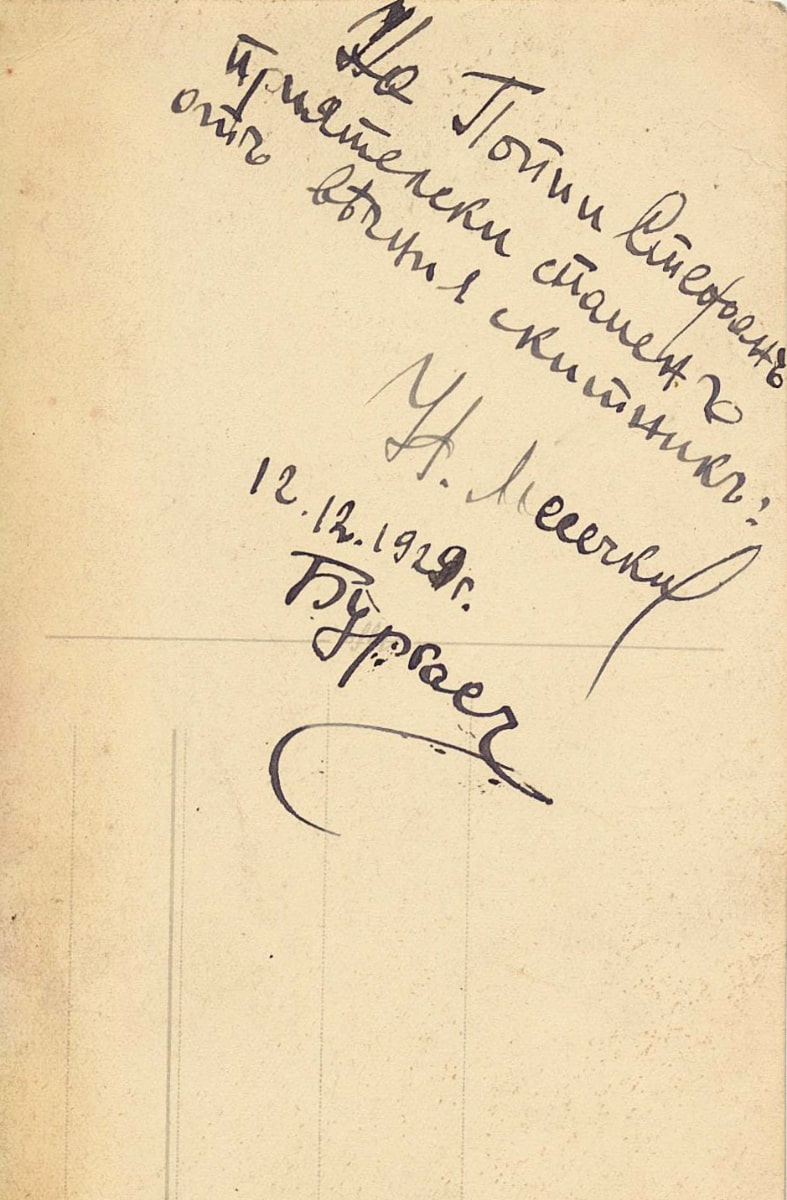 На Потйи Стефанъ
приятелски споменъ
отъ вѣчния скитникъ:
Н.
12.12.1929г.
Бургасъ